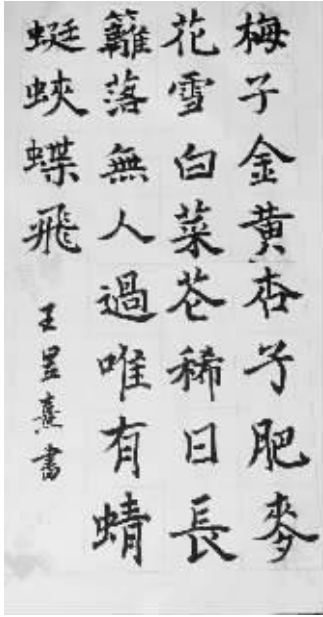 梅子金黄杏子肥麥
花雪白菜花稀日長
籬落無人過唯有蜻
蜓蛺蝶飛
王昱熹書